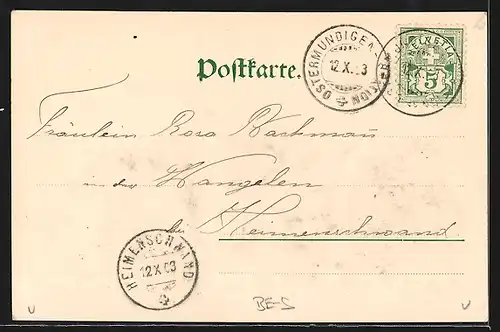 Postkarte.
OSTERMUNDIGEN-STATION
12.X.03
HELVETIA
5
Fräulein Rosa Bachmann
in der Wangelen
bei Heimenschwand
HEIMENSCHWAND
12 X 03
BE-S